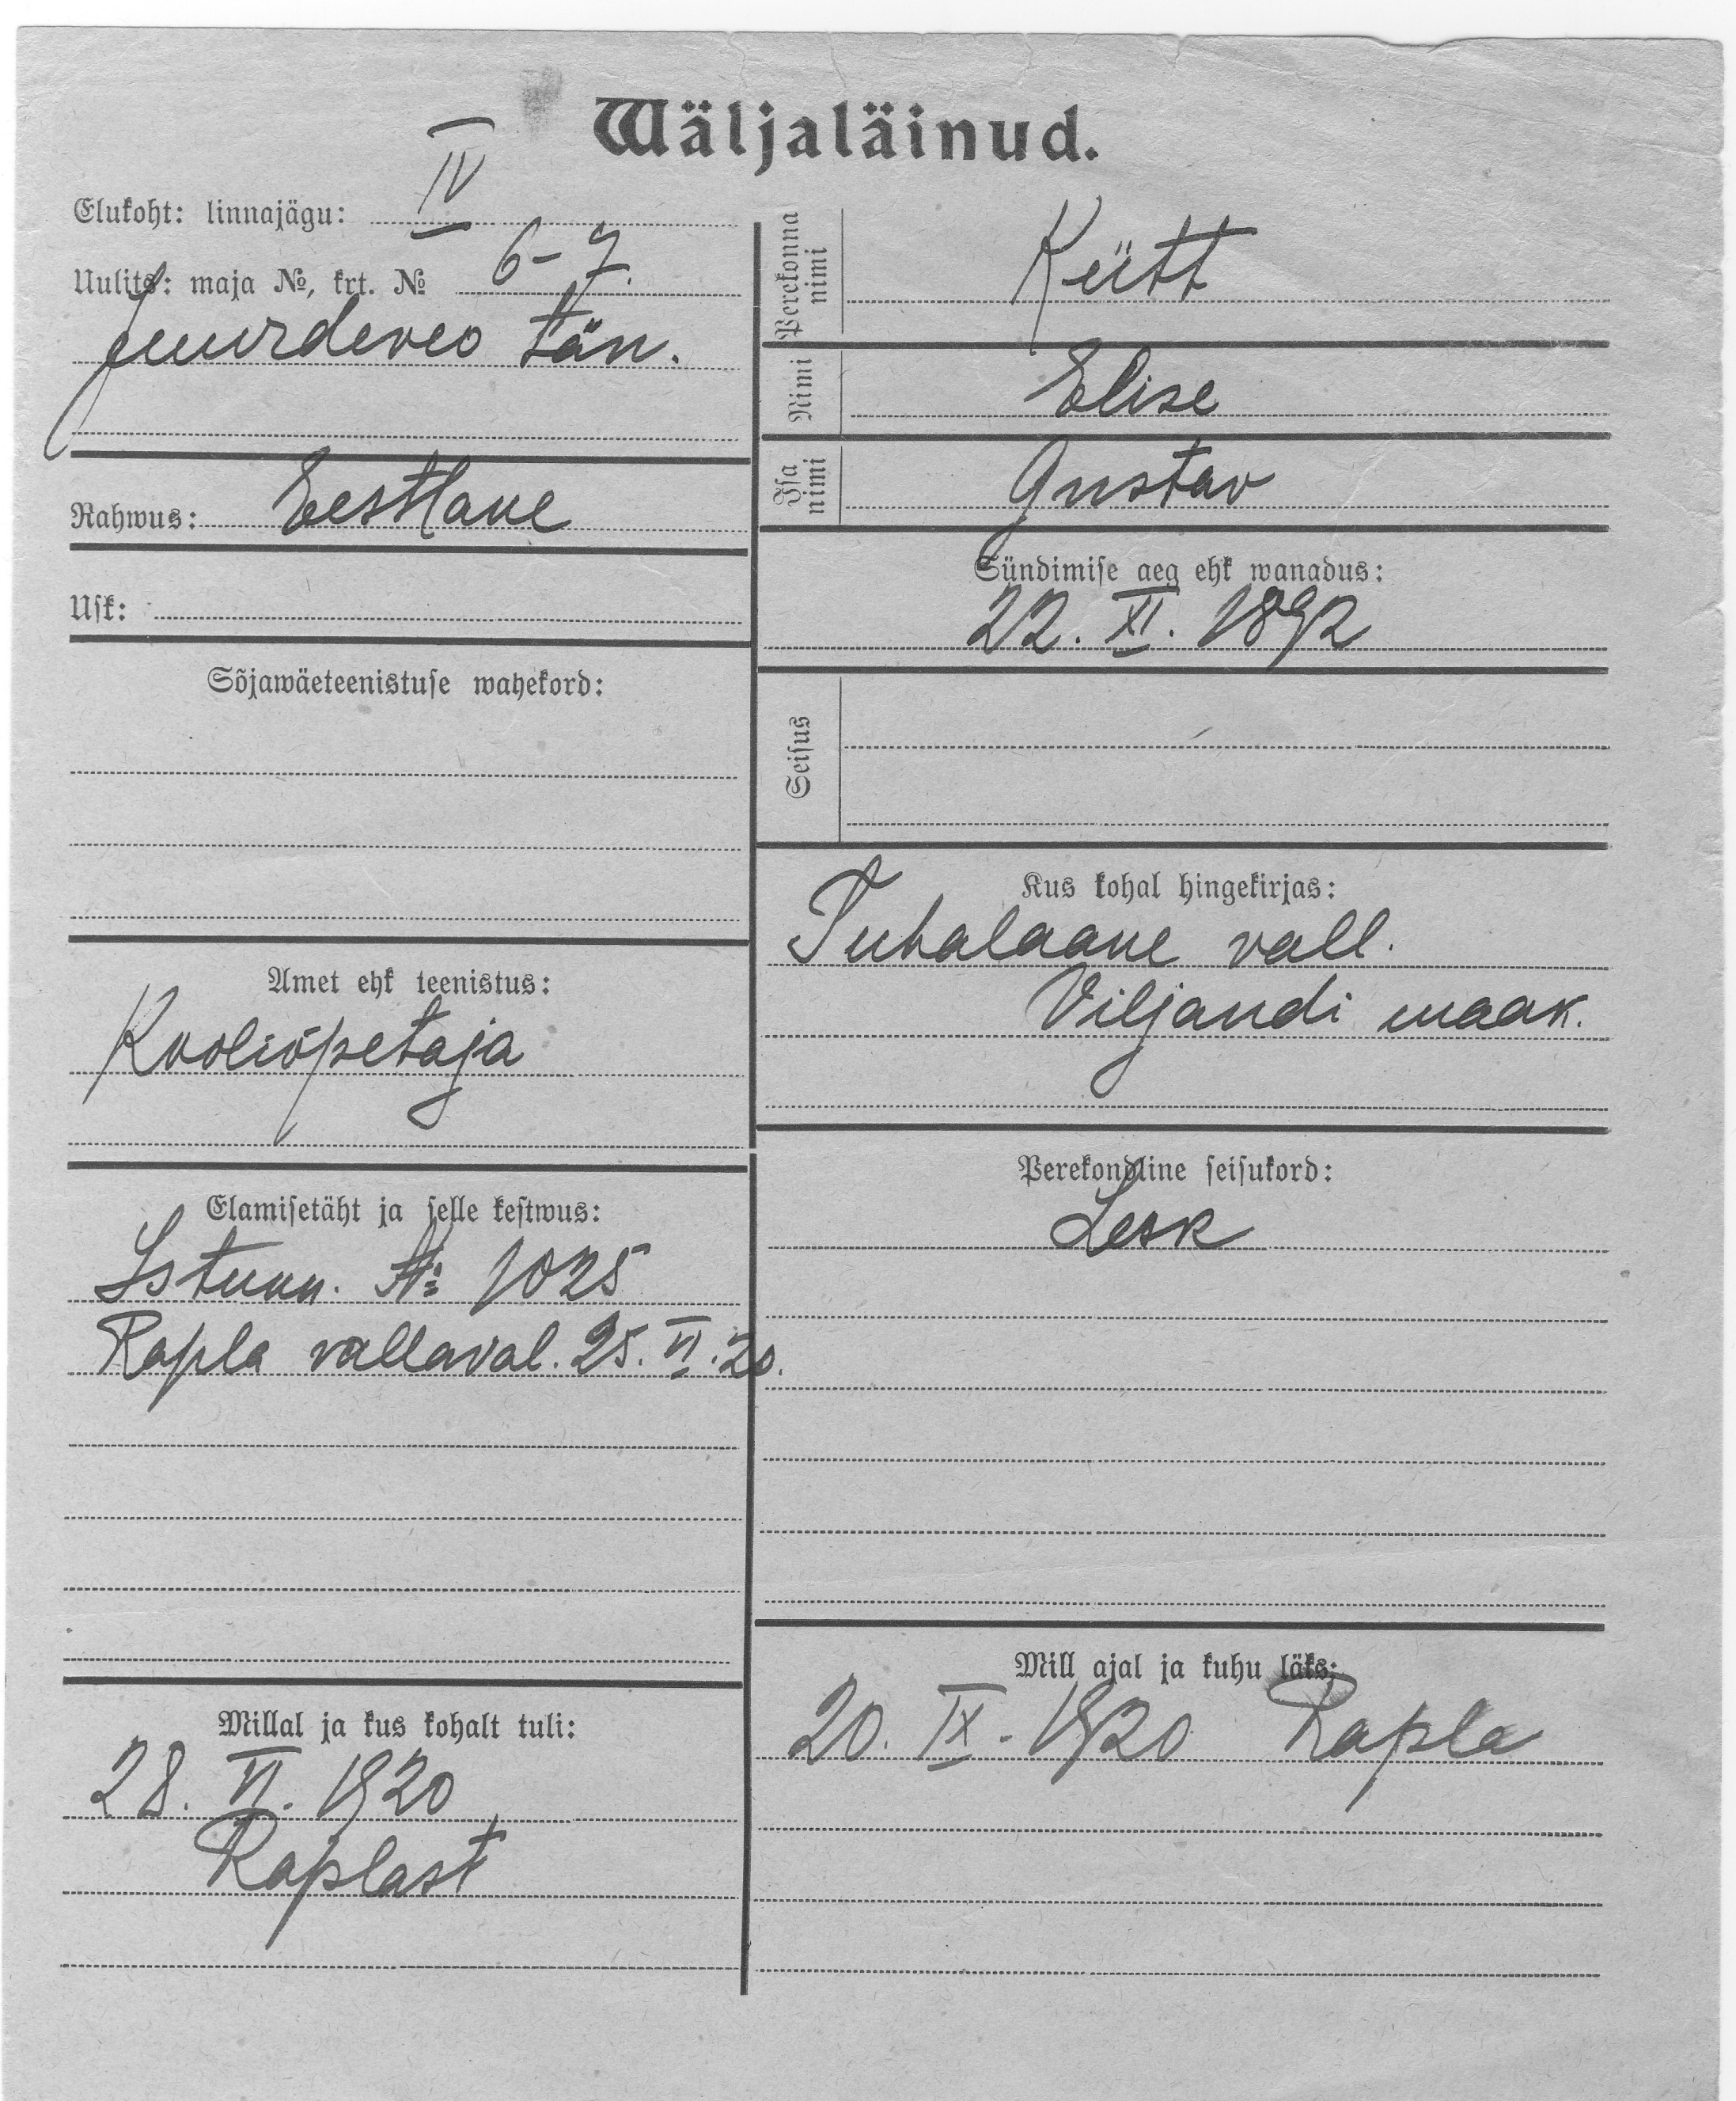 Wäljaläinud.
Elukoht: linnajägu: IV
Uulits: maja №, krt. № 6-7.
Juurdeveo tän.
Rahwus: Eestlane
Usk:
Sõjawäeteenistuse wahekord:
Amet ehk teenistus:
Kooliõpetaja
Elamisetäht ja selle kestwus:
Istunn. № 1025
Rapla vallaval. 25. VI. 20.
Millal ja kus kohalt tuli:
28. VI. 1920
Raplast
Perekonna
nimi
Kütt
Nimi
Elise
Isa
nimi
Gustav
Sündimise aeg ehk wanadus:
22. XI. 1892
Seisus
Kus kohal hingekirjas:
Tuhalaane vall.
Viljandi maak.
Perekondline seisukord:
Lesk
Mill ajal ja kuhu läks:
20. IX. 1920 Rapla